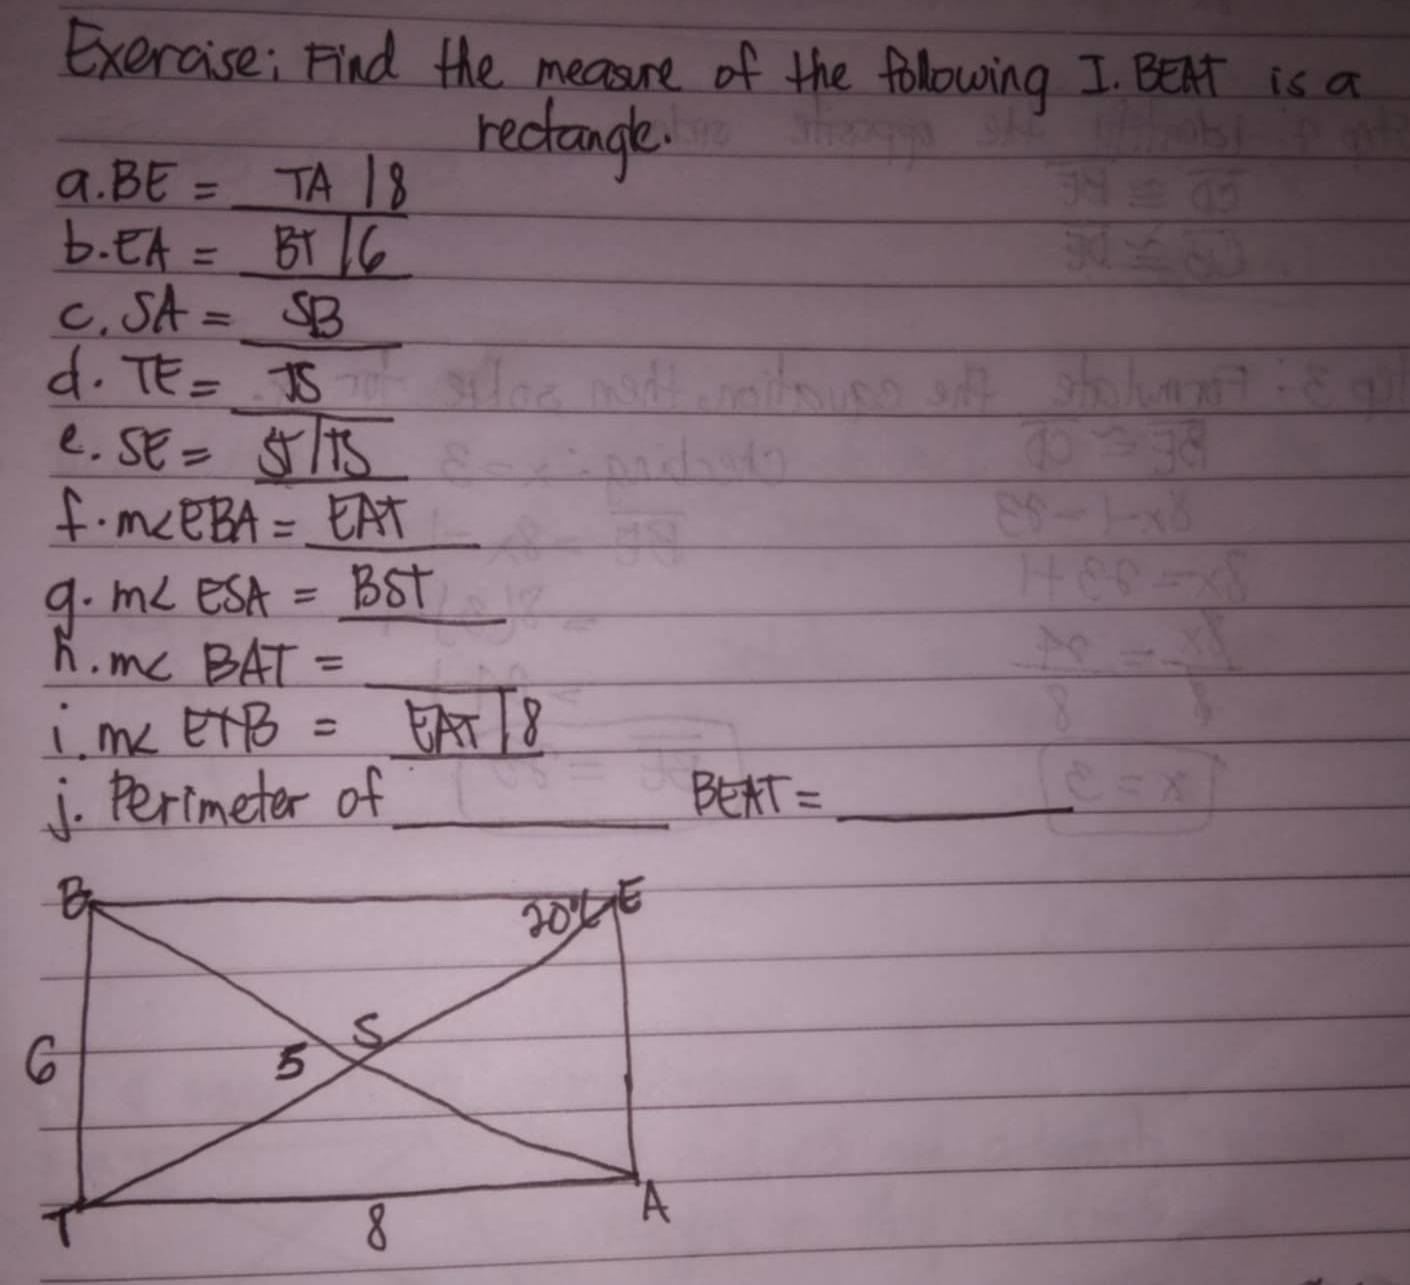 Exercise: Find the measure of the following I. BEAT is a
rectangle.
a. BE = TA | 8
b. EA = BT | 6
c. SA = SB
d. TE = TS
e. SE = ST | TS
f. m< EBA = EAT
g. m< ESA = BST
h. m< BAT =
i. m< ETB = EAT | 8
j. Perimeter of BEAT =
B E
20°
S
6 5
A
T 8